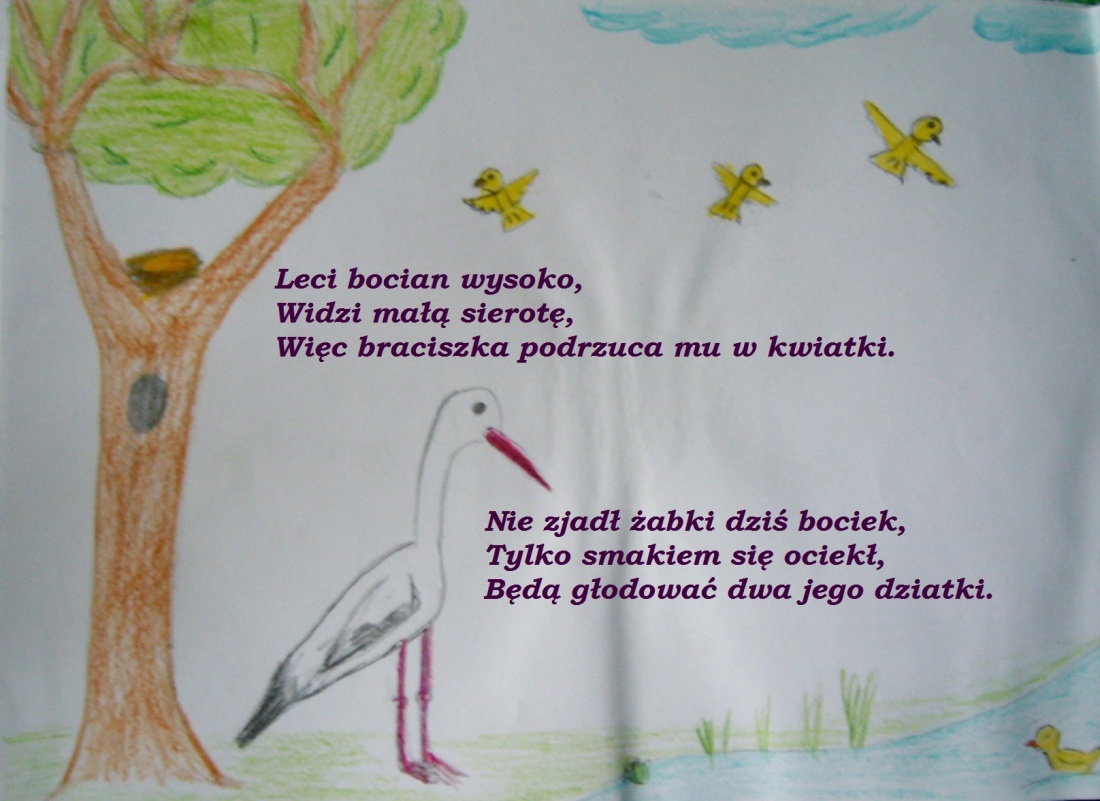 Leci bocian wysoko,
Widzi małą sierotę,
Więc braciszka podrzuca mu w kwiatki.
Nie zjadł żabki dziś bociek,
Tylko smakiem się ociekł,
Będą głodować dwa jego dziatki.